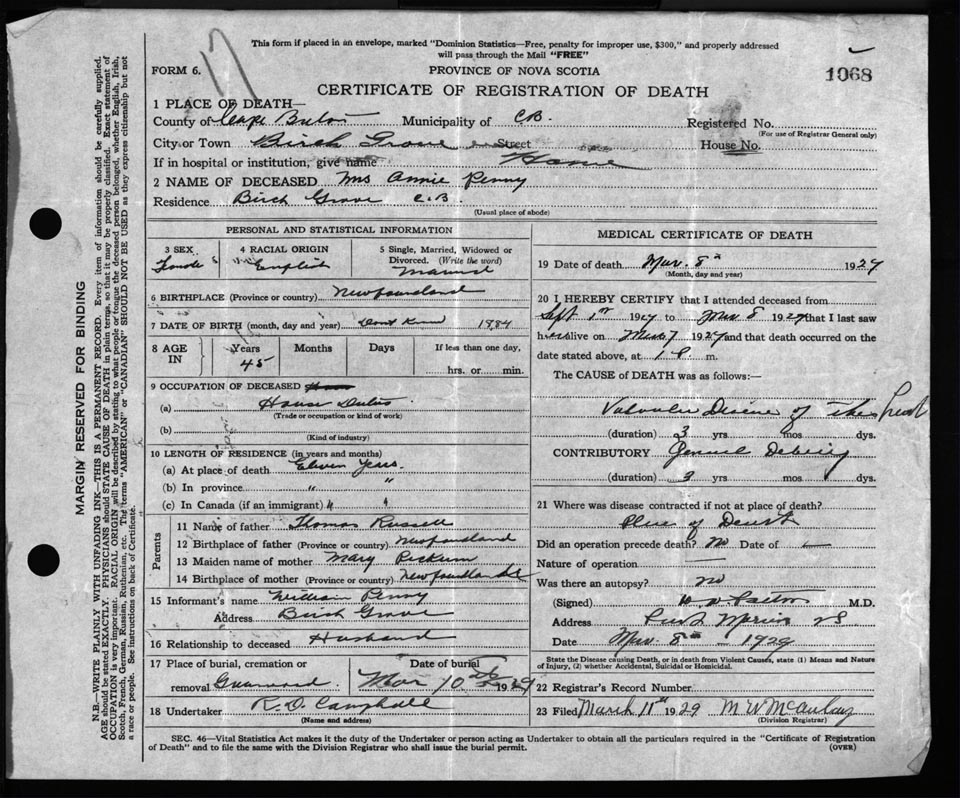 17
This form if placed in an envelope, marked "Dominion Statistics—Free, penalty for improper use, $300," and properly addressed
will pass through the Mail "FREE"
FORM 6.
PROVINCE OF NOVA SCOTIA
1068
CERTIFICATE OF REGISTRATION OF DEATH
1 PLACE OF DEATH—
County of Cape Breton Municipality of C.B. Registered No.
(For use of Registrar General only)
City or Town Birch Grove Street House No.
If in hospital or institution, give name Home
2 NAME OF DECEASED Mrs Annie Penny
Residence Birch Grove C.B.
(Usual place of abode)
PERSONAL AND STATISTICAL INFORMATION
3 SEX
Female
4 RACIAL ORIGIN
English
5 Single, Married, Widowed or
Divorced. (Write the word)
Married
6 BIRTHPLACE (Province or country) Newfoundland
7 DATE OF BIRTH (month, day and year) Dont Know 1884
8 AGE IN
Years
45
Months
Days
If less than one day,
hrs. or min.
9 OCCUPATION OF DECEASED
(a) House Duties
(Trade or occupation or kind of work)
(b)
(Kind of industry)
10 LENGTH OF RESIDENCE (in years and months)
(a) At place of death Eleven Years.
(b) In province " "
(c) In Canada (if an immigrant) " "
Parents
11 Name of father Thomas Russell
12 Birthplace of father (Province or country) Newfoundland
13 Maiden name of mother Mary
14 Birthplace of mother (Province or country) Newfoundland
15 Informant's name William Penny
Address Birch Grove
16 Relationship to deceased Husband
17 Place of burial, cremation or
removal
Date of burial
Mar 10 1929
18 Undertaker R. D. Campbell
(Name and address)
MEDICAL CERTIFICATE OF DEATH
19 Date of death Mar. 8th 1929
(Month, day and year)
20 I HEREBY CERTIFY that I attended deceased from
Sept 1st 1927 to Mar 8 1929 that I last saw
her alive on Mar 7 1929 and that death occurred on the
date stated above, at 1 P. m.
The CAUSE of DEATH was as follows:
Valvular Disease of The heart
(duration) 3 yrs mos dys.
CONTRIBUTORY General Debility
(duration) 3 yrs mos dys.
21 Where was disease contracted if not at place of death?
Place of Death
Did an operation precede death? No Date of —
Nature of operation —
Was there an autopsy? no
(Signed) M.D.
Address Port Morien NS
Date Mar. 8th 1929
State the Disease causing Death, or in death from Violent Causes, state (1) Means and Nature
of Injury, (2) whether Accidental, Suicidal or Homicidal.
22 Registrar's Record Number
23 Filed March 11th 1929 M W McAulay
(Division Registrar)
SEC. 46—Vital Statistics Act makes it the duty of the Undertaker or person acting as Undertaker to obtain all the particulars required in the "Certificate of Registration
of Death" and to file the same with the Division Registrar who shall issue the burial permit.
(OVER)
MARGIN RESERVED FOR BINDING
N.B.—WRITE PLAINLY WITH UNFADING INK—THIS IS A PERMANENT RECORD. Every item of information should be carefully supplied.
AGE should be stated EXACTLY. PHYSICIANS should STATE CAUSE OF DEATH in plain terms, so that it may be properly classified. Exact statement of
OCCUPATION is very important. RACIAL ORIGIN will be described by stating to what people or tongue the deceased person belonged, whether English, Irish,
Scotch, French, German, Russian, Ruthenian, etc. The terms "AMERICAN" or "CANADIAN" SHOULD NOT BE USED as they express citizenship but not
a race or people. See instructions on back of Certificate.